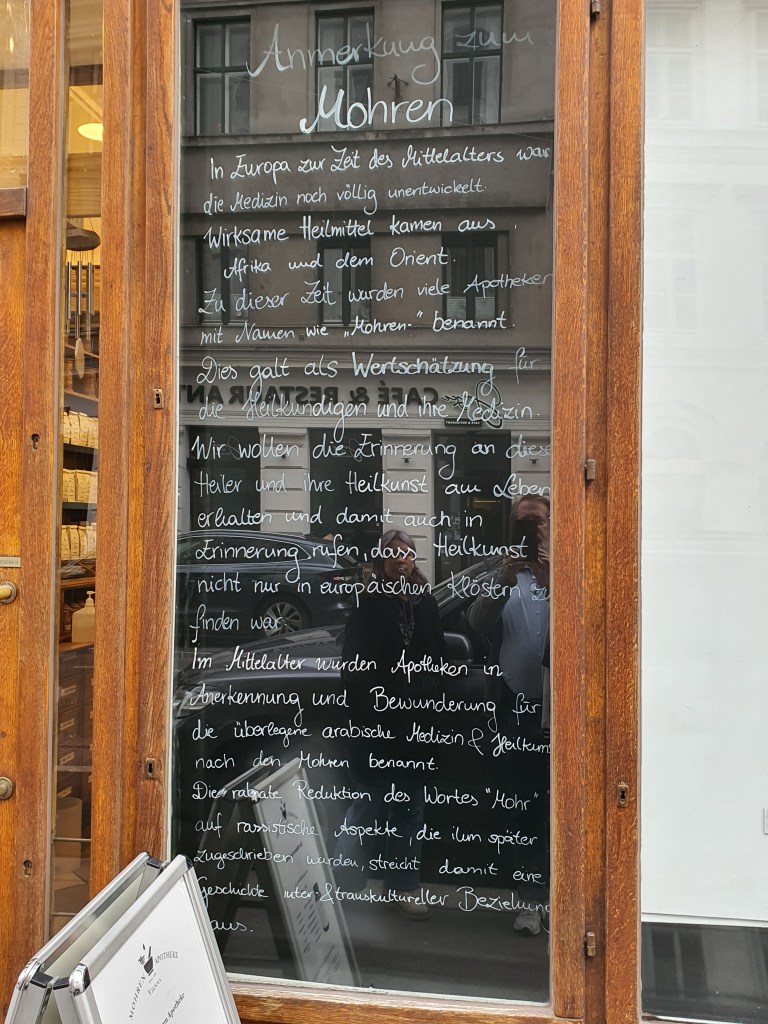 Anmerkung zum
Mohren
In Europa zur Zeit des Mittelalters war
die Medizin noch völlig unentwickelt.
Wirksame Heilmittel kamen aus
Afrika und dem Orient.
Zu dieser Zeit wurden viele Apotheken
mit Namen wie „Mohren-" benannt.
Dies galt als Wertschätzung für
die Heilkundigen und ihre Medizin.
CAFÉ & RESTAURANT
Wir wollen die Erinnerung an diese
Heiler und ihre Heilkunst am Leben
erhalten und damit auch in
Erinnerung rufen, dass Heilkunst
nicht nur in europäischen Klöstern zu
finden war.
Im Mittelalter wurden Apotheken in
Anerkennung und Bewunderung für
die überlegene arabische Medizin & Heilkunst
nach den Mohren benannt.
Die Reduktion des Wortes "Mohr"
auf rassistische Aspekte, die ihm später
zugeschrieben wurden, streicht damit eine
Geschichte inter- & transkultureller Beziehung
aus.
MOHREN APOTHEKE
VIENNA
Apotheke